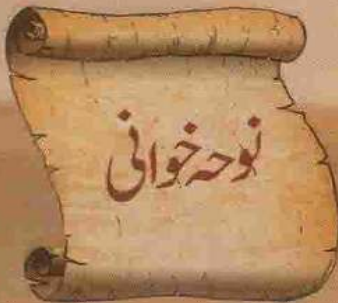 نوحہ خوانی